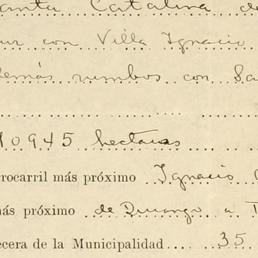 anta Catalina de
ur con Villa Ignacio
demás rumbos con Sa
10945 hectareas
rrocarril más próximo Ignacio
más próximo de Durango a T
ecera de la Municipalidad 35